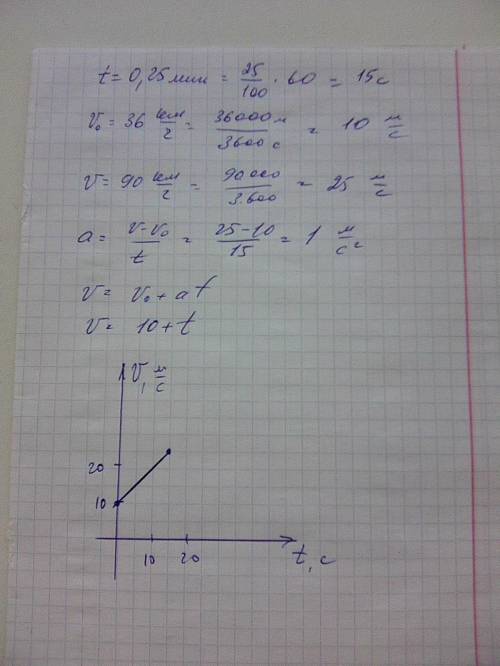 t = 0,25 мин = 25/100 · 60 = 15 с
v₀ = 36 км/г = 36000 м/3600 с = 10 м/с
v = 90 км/г = 90000/3.600 = 25 м/с
a = v-v₀/t = 25-10/15 = 1 м/с²
v = v₀ + at
v = 10 + t
v, м/с
20
10
10 20 t, с